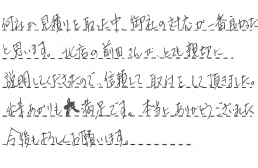 何社か見積りを取った中、御社の対応が一番良かった
と思います。北店の前田さんがとても親切に
説明してくださったので、信頼して取付をして頂きました。
出来あがりも大満足です。本当にありがとうございました
今後もよろしくお願いします。